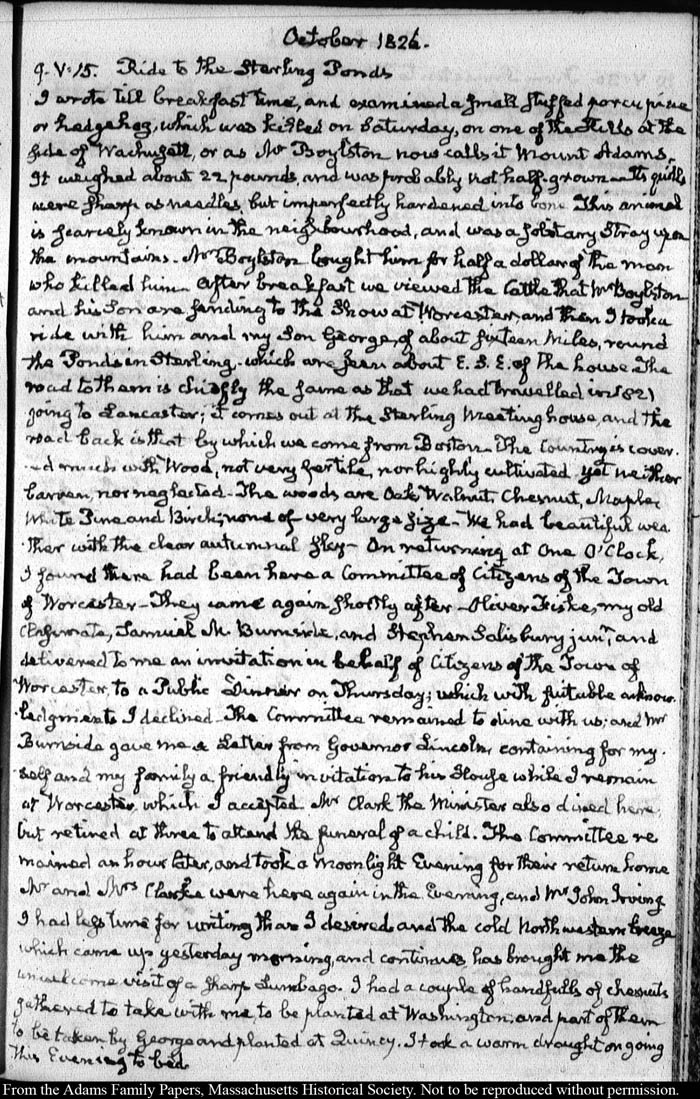 October 1826.
9. V:15. Ride to the Sterling Ponds
I wrote till breakfast time, and examined a small stuffed porcupine
or hedgehog, which was killed on Saturday, on one of the Hills at the
side of Wachusett, or as Mr Boylston now calls it Mount Adams.
It weighed about 22 pounds, and was probably not half-grown — Its quills
were sharp as needles, but imperfectly hardened into bone. This animal
is scarcely known in the neighbourhood, and was a solitary Stray upon
the mountains. Mr Boylston bought him for half a dollar of the man
who killed him. After breakfast we viewed the Cattle that Mr Boylston
and his Son are sending to the Show at Worcester, and then I took a
ride with him and my Son George, of about sixteen Miles, round
the Ponds in Sterling, which are seen about E. S. E. of the house. The
road to them is chiefly the same as that we had travelled in 1821
going to Lancaster; it comes out at the Sterling Meeting house, and the
road back is that by which we come from Boston. The Country is cover-
-ed much with Wood, not very fertile, nor highly cultivated yet neither
barren, nor neglected. The woods are Oak, Walnut, Chesnut, Maple,
White Pine and Birch; none of very large size. We had beautiful wea-
-ther with the clear autumnal sky. On returning at One O'Clock,
I found there had been here a Committee of Citizens of the Town
of Worcester — They came again shortly after — Oliver Fiske, my old
Classmate, Samuel M. Burnside, and Stephen Salisbury junr, and
delivered to me an invitation in behalf of Citizens of the Town of
Worcester, to a Public Dinner on Thursday; which with suitable acknow-
-ledgments I declined. The Committee remained to dine with us; and Mr
Burnside gave me a Letter from Governor Lincoln, containing for my-
-self and my family a friendly invitation to his House while I remain
at Worcester which I accepted. Mr Clark the Minister also dined here,
but retired at three to attend the funeral of a child. The Committee re-
mained an hour later, and took a Moonlight Evening for their return home
Mr and Mrs Clarke were here again in the Evening, and Mr John Irving
I had less time for writing than I desired and the cold Northwestern breeze
which came up yesterday morning, and continues, has brought me the
unwelcome visit of a sharp Lumbago. I had a couple of handfulls of chesnuts
gathered to take with me, to be planted at Washington; and part of them
to be taken by George and planted at Quincy. I took a warm draught on going
this Evening to bed.
From the Adams Family Papers, Massachusetts Historical Society. Not to be reproduced without permission.